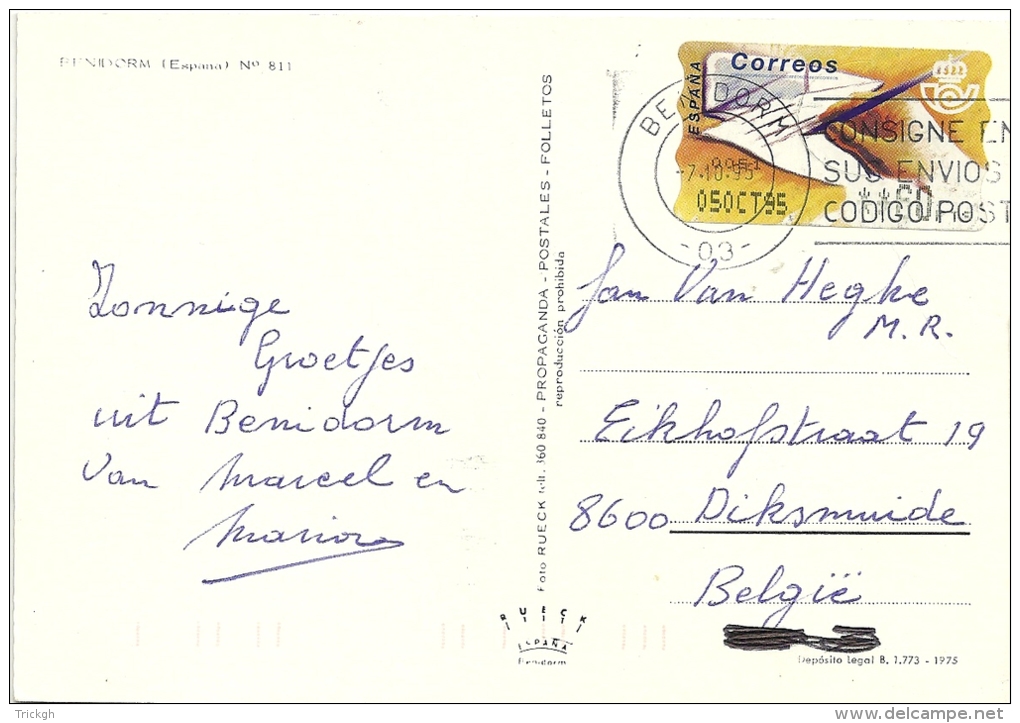 BENIDORM (España) Nº 811
Zonnige
Groetjes
uit Benidorm
van Marcel en
Foto RUECK telf. 360 840 - PROPAGANDA - POSTALES - FOLLETOS
reproducción prohibida
RUECK
ESPAÑA
Benidorm
Correos
ESPAÑA
BENIDORM
-7.10.95
05OCT95
-03-
CONSIGNE EN
SUS ENVIOS
CODIGO POST
Jan Van Hegke
M.R.
Eikhofstraat 19
8600 Diksmuide
België
Depósito Legal B. 1.773 - 1975
Trickgh
www.delcampe.net